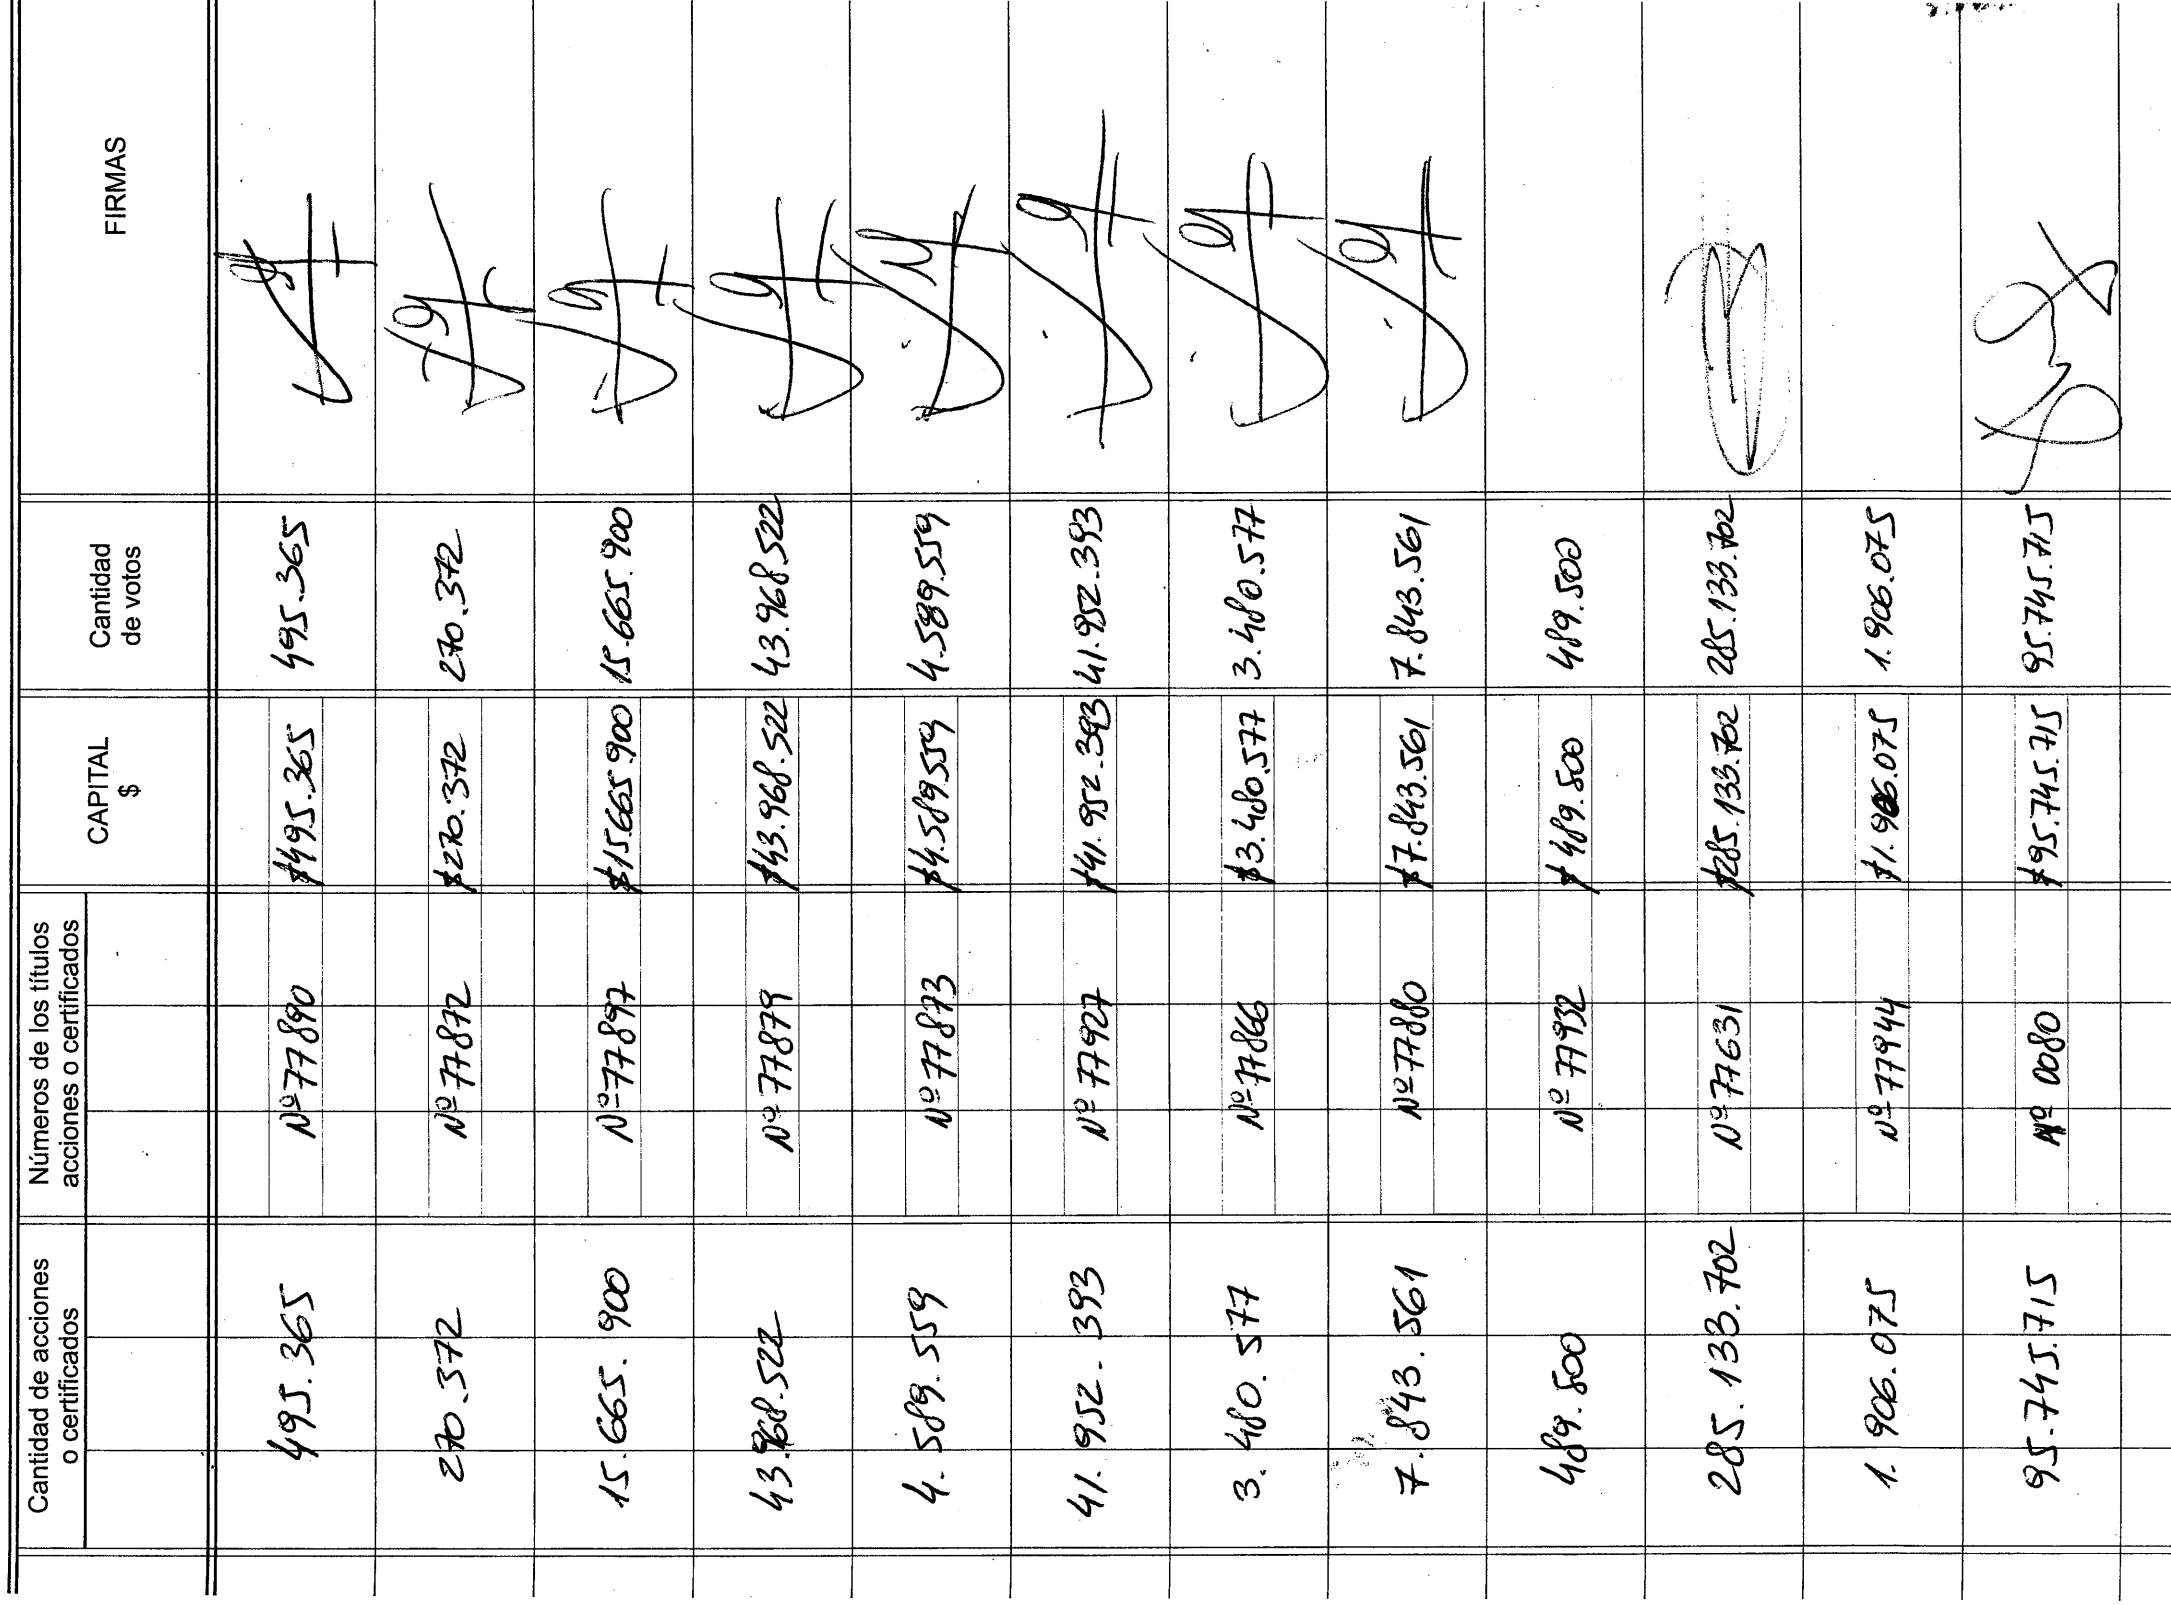 Cantidad de acciones o certificados | Números de los títulos acciones o certificados | CAPITAL $ | Cantidad de votos | FIRMAS
495.365 | Nº 77890 | $495.365 | 495.365
270.372 | Nº 77872 | $270.372 | 270.372
15.665.900 | Nº 77897 | $15.665.900 | 15.665.900
43.968.522 | Nº 77879 | $43.968.522 | 43.968.522
4.589.559 | Nº 77873 | $4.589.559 | 4.589.559
41.952.393 | Nº 77927 | $41.952.393 | 41.952.393
3.480.577 | Nº 77866 | $3.480.577 | 3.480.577
7.843.561 | Nº 77880 | $7.843.561 | 7.843.561
489.500 | Nº 77932 | $489.500 | 489.500
285.133.702 | Nº 77631 | $285.133.702 | 285.133.702
1.906.075 | Nº 77944 | $1.906.075 | 1.906.075
95.745.715 | Nº 0080 | $95.745.715 | 95.745.715